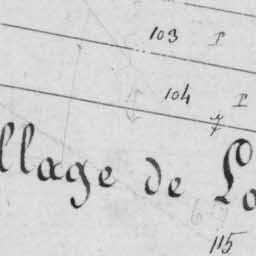 103 P
104 P
llage de Lo
115